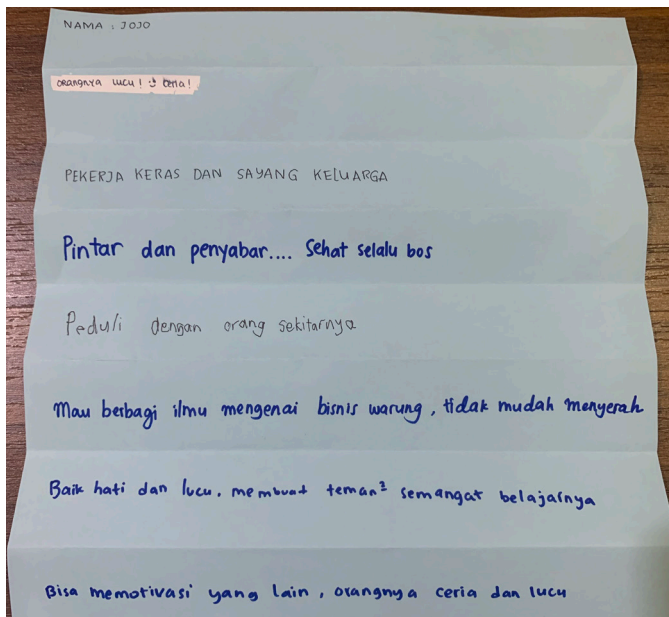 NAMA : JOJO
orangnya lucu! & ceria!
PEKERJA KERAS DAN SAYANG KELUARGA
Pintar dan penyabar.... Sehat selalu bos
Peduli dengan orang sekitarnya
Mau berbagi ilmu mengenai bisnis warung, tidak mudah menyerah
Baik hati dan lucu. membuat teman² semangat belajarnya
Bisa memotivasi yang lain, orangnya ceria dan lucu